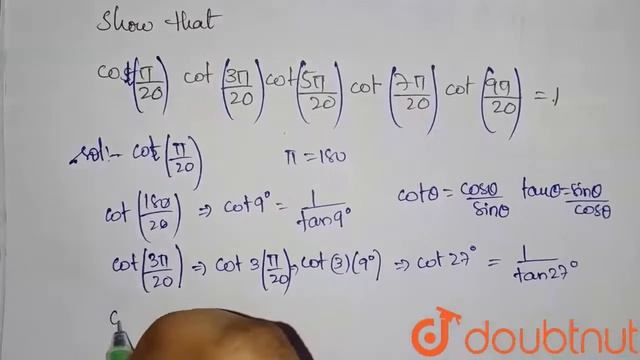 Show that
cot(π/20) cot(3π/20) cot(5π/20) cot(7π/20) cot(9π/20) = 1
Sol:- cot(π/20) π = 180
cot(180/20) ⇒ cot 9° = 1/tan 9° cotθ = cosθ/sinθ tanθ = sinθ/cosθ
cot(3π/20) ⇒ cot 3(π/20) ⇒ cot (3)(9°) ⇒ cot 27° = 1/tan 27°
doubtnut